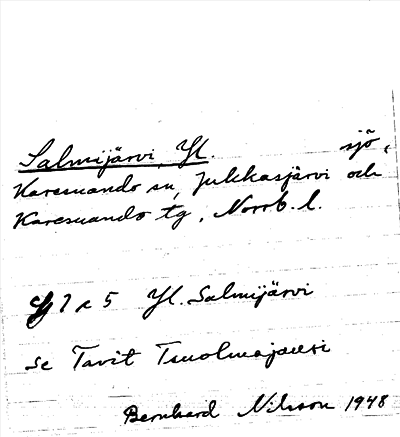 Salmijärvi, Yl. sjö,
Karesuando sn, Jukkasjärvi och
Karesuando tg, Norrb. l.
7 x 5 Yl. Salmijärvi
se Tavit Tsuolmajaure
Bernhard Nilsson 1948